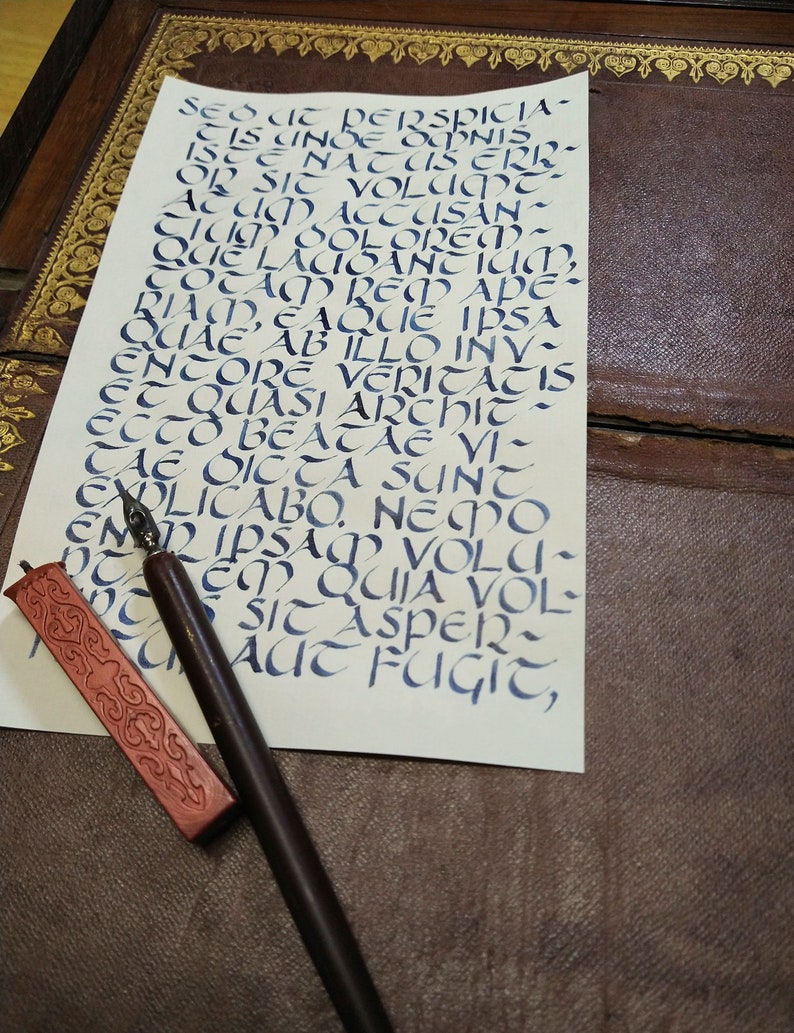 SED UT PERSPICIA-
TIS UNDE OMNIS
ISTE NATUS ERR-
OR SIT VOLUMT-
ATUM ACCUSAN-
TIUM DOLOREM-
QUE LAUDANTIUM,
TOTAM REM APE-
RIAM, EAQUE IPSA
QUAE AB ILLO INV-
ENTORE VERITATIS
ET QUASI ARCHIT-
ECTO BEATAE VI-
TAE DICTA SUNT
EXPLICABO. NEMO
IPSAM VOLU-
QUIA VOL-
SIT ASPER-
AUT FUGIT,